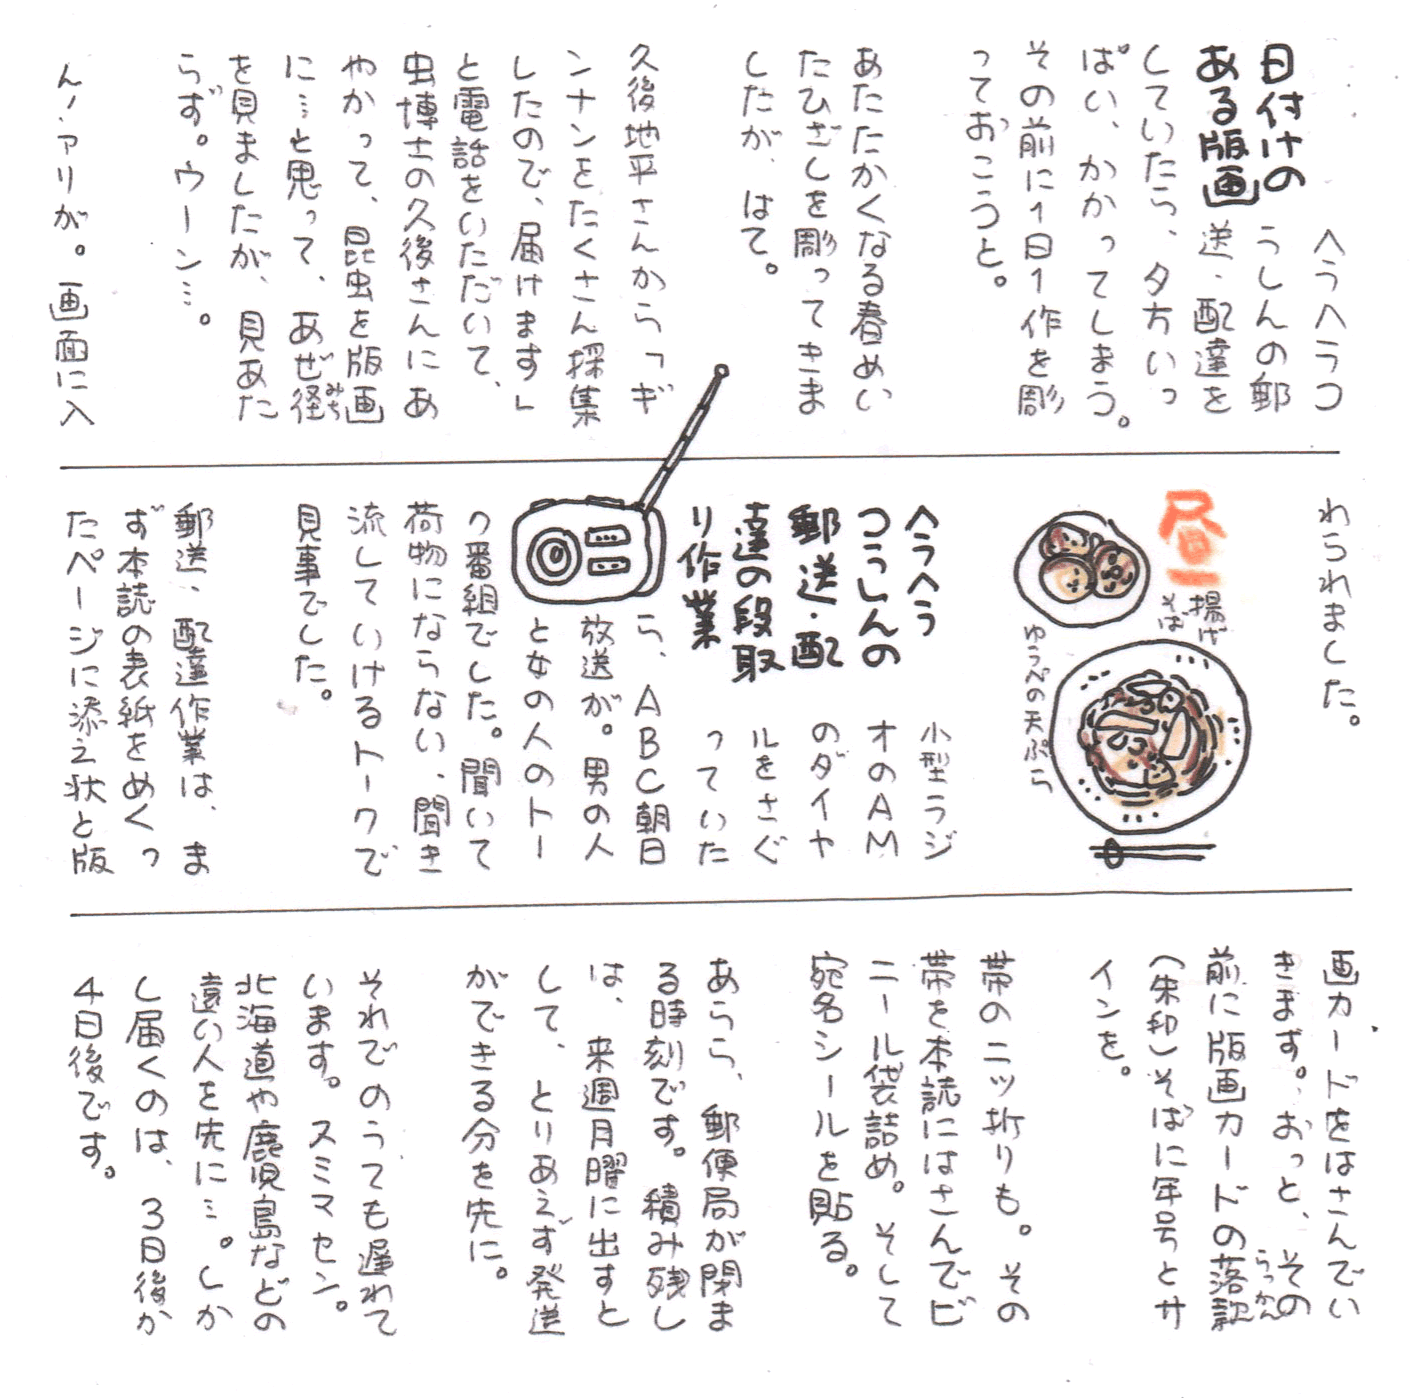 日付けの
ある版画
ヘラヘラコ
うしんの郵
送、配達を
していたら、夕方いっ
ぱい、かかってしまう。
その前に1日1作を彫
っておこうっと。
あたたかくなる春めい
たひざしを彫ってきま
したが、はて。
久後地平さんから「ギ
ンナンをたくさん採集
したので、届けます」
と電話をいただいて、
虫博士の久後さんにあ
やかって、昆虫を版画
に…と思って、あぜ径
みち
を見ましたが、見あた
らず。ウーン…。
ん！アリが。画面に入
われました。
昼
揚げ
そば
ゆうべの天ぷら
ヘラヘラ
つうしんの
郵送・配
達の段取
り作業
小型ラジ
オのAM
のダイヤ
ルをさぐ
っていた
ら、ABC朝日
放送が。男の人
と女の人のトー
ク番組でした。聞いて
荷物にならない、聞き
流していけるトークで
見事でした。
郵送、配達作業は、ま
ず本誌の表紙をめくっ
たページに添え状と版
画カードをはさんでい
きます。おっと、その
前に版画カードの落款
らっかん
（朱印）そばに年号とサ
インを。
帯のニッ折りも。その
帯を本誌にはさんでビ
ニール袋詰め。そして
宛名シールを貼る。
あらら、郵便局が閉ま
る時刻です。積み残し
は、来週月曜に出すと
して、とりあえず発送
ができる分を先に。
それでのうても遅れて
います。スミマセン。
北海道や鹿児島などの
遠い人を先に…。しか
し届くのは、3日後か
4日後です。